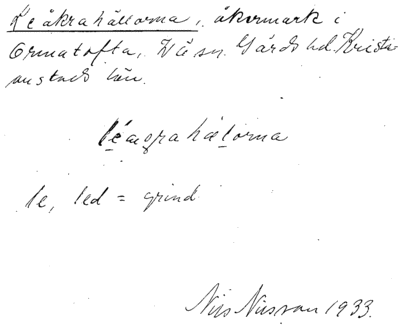 Leåkrahällorna, åkermark i
Ormatofta, Vä sn. Gärds hd. Kristi-
anstads län.
léagrahælorna
le, led = grind
Nils Nilsson 1933.